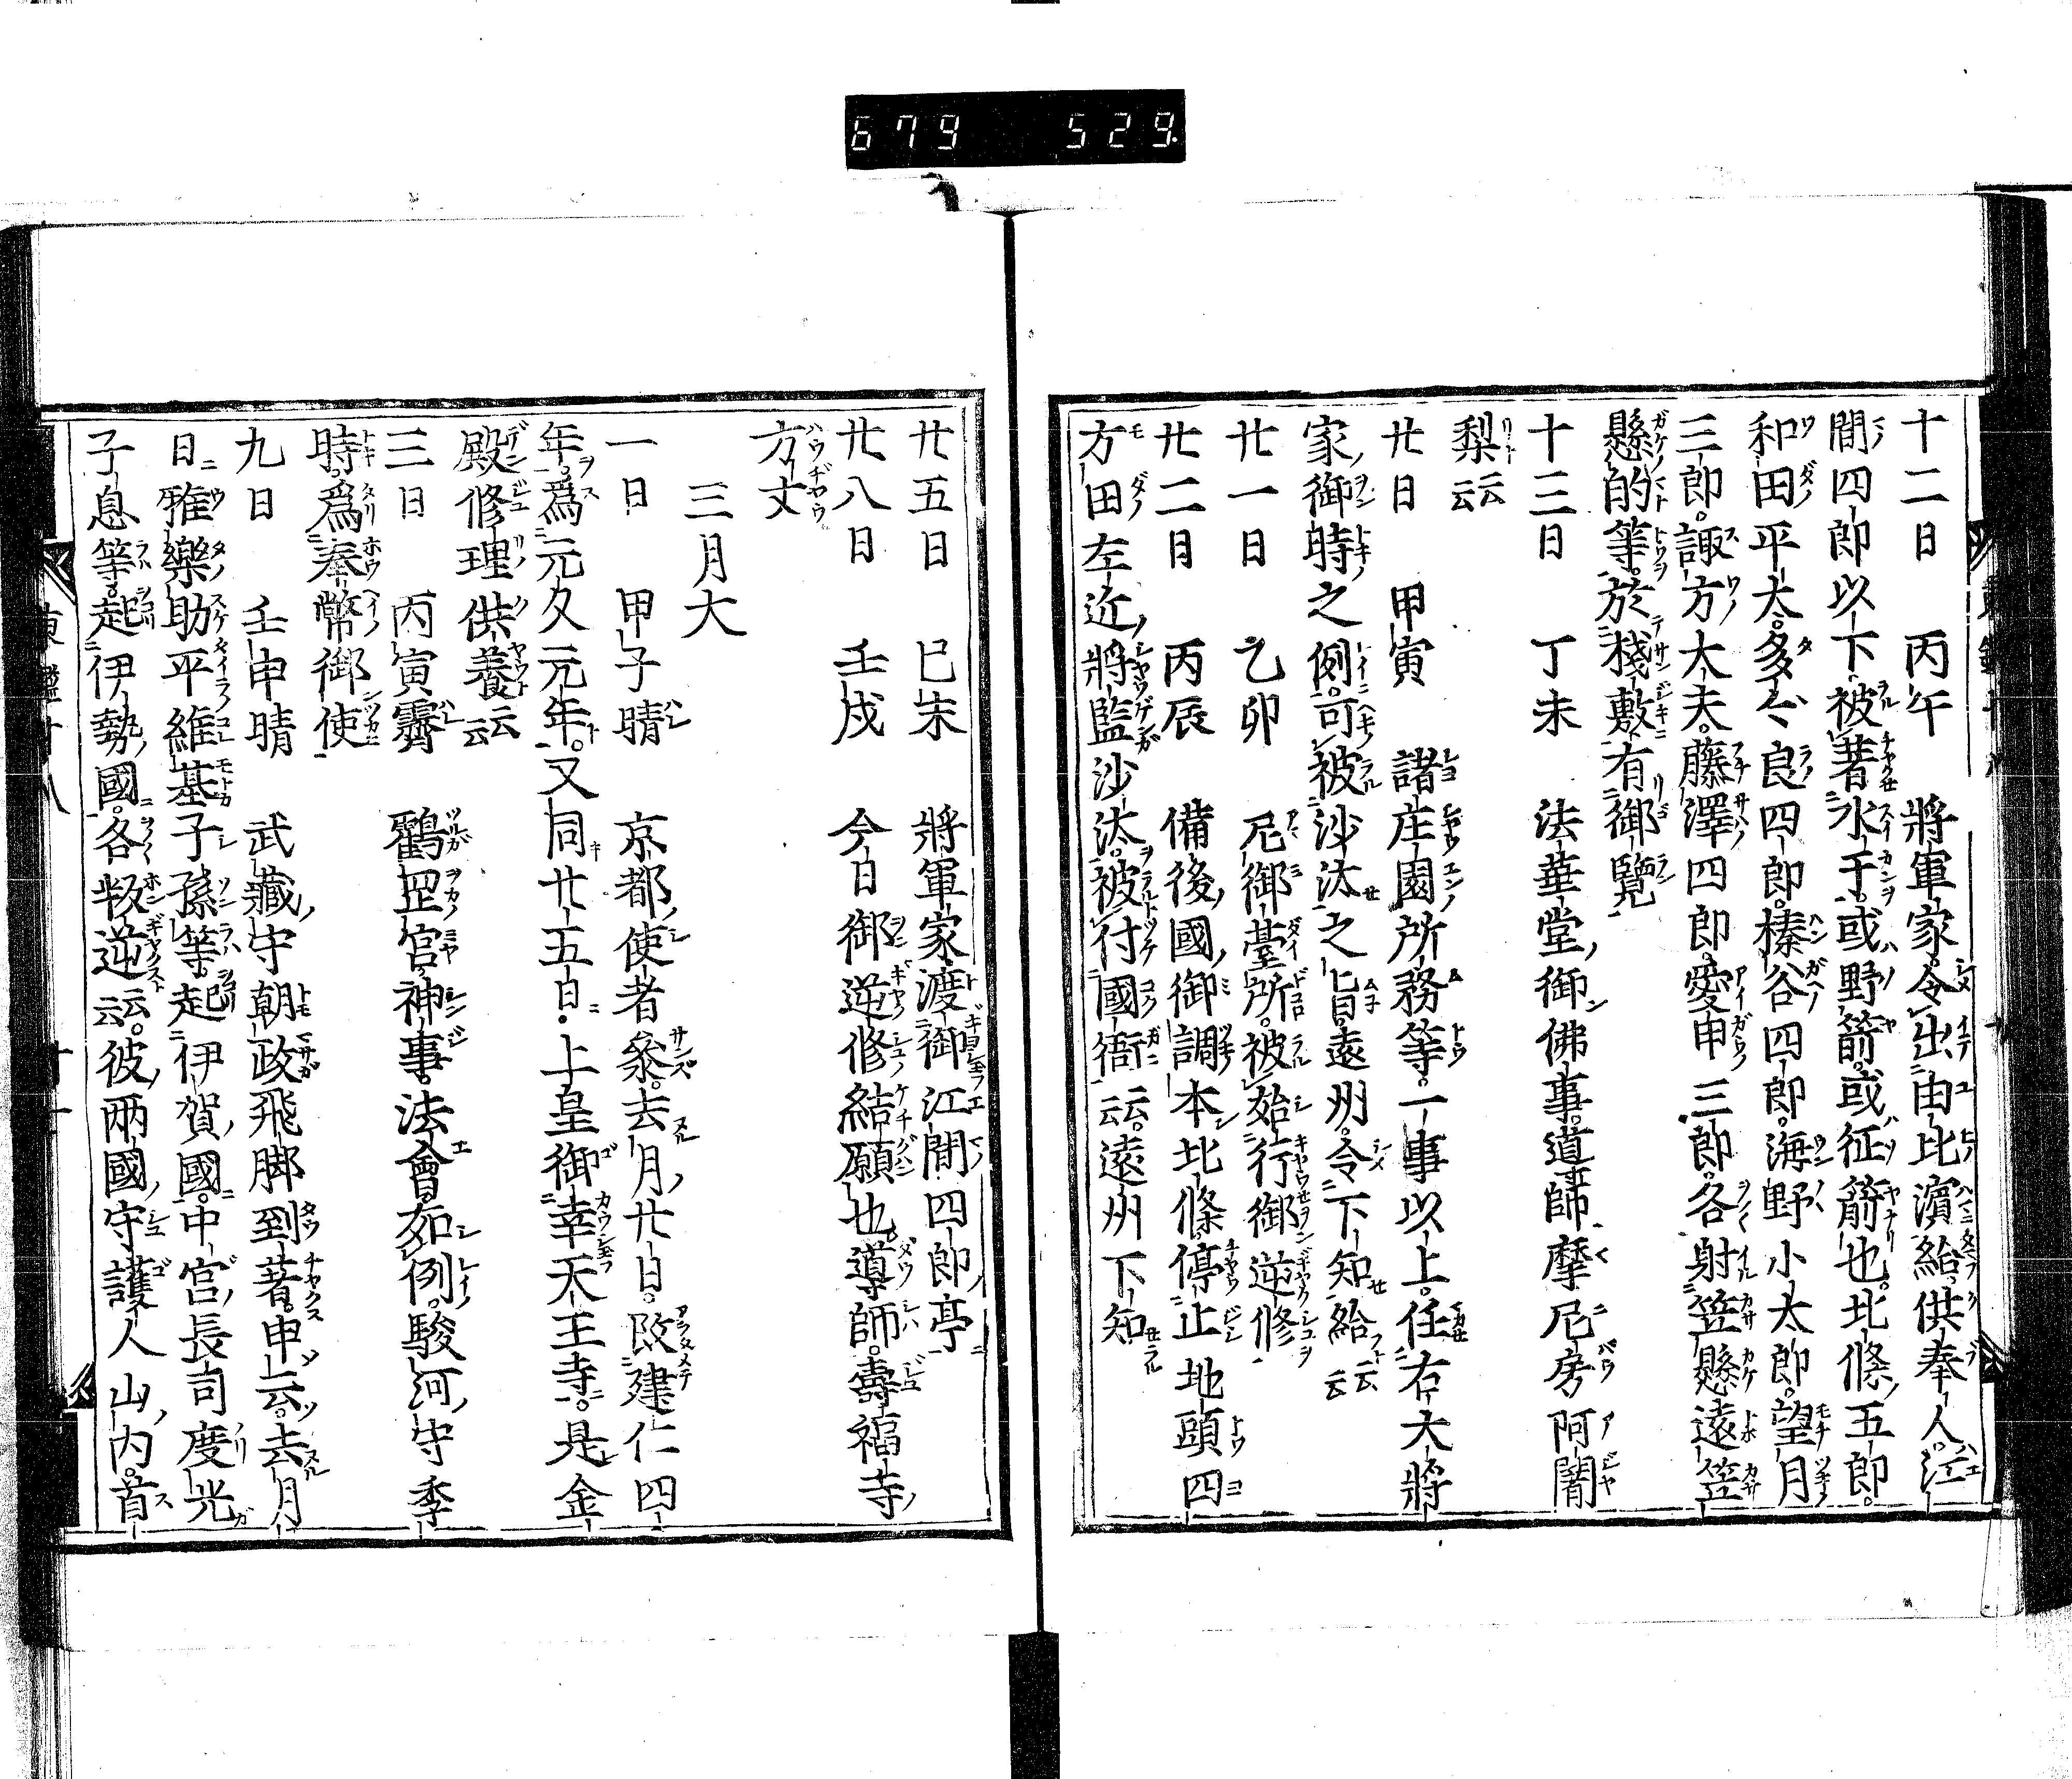 679 529
十二日 丙午 將軍家。令出由比濱給。供奉人。江
間四郎以下。被著水干。或野箭。或征箭也。北條五郎。
和田平太。多々良四郎。榛谷四郎。海野小太郎。望月
三郎。諏方大夫。藤澤四郎。愛甲三郎。各射笠懸遠笠
懸的等。於棧敷有御覽
十三日 丁未 法華堂御佛事。導師摩尼房阿闍
梨云云
廿日 甲寅 諸庄園所務等。一事以上。任右大將
家御時之例。可被沙汰之旨。遠州。令下知給云云
廿一日 乙卯 尼御臺所。被始行御逆修
廿二日 丙辰 備後國御調本北條。停止地頭四
方田左近將監沙汰。被付國衙云云。遠州下知
廿五日 巳未 將軍家渡御江間四郎亭
廿八日 壬戌 今日御逆修結願也。導師。壽福寺
方丈
三月大
一日 甲子晴 京都使者參。去月廿日。改建仁四
年。爲元久元年。又同廿五日。上皇御幸天王寺。是金
殿修理供養云云
三日 丙寅霽 鶴罡宮神事。法會如例。駿河守季
時。爲奉幣御使
九日 壬申晴 武藏守朝政飛脚到著。申云。去月
日。雅樂助平維基子孫等。起伊賀國。中宮長司度光
子息等。起伊勢國。各叛逆云云。彼兩國守護人山内首